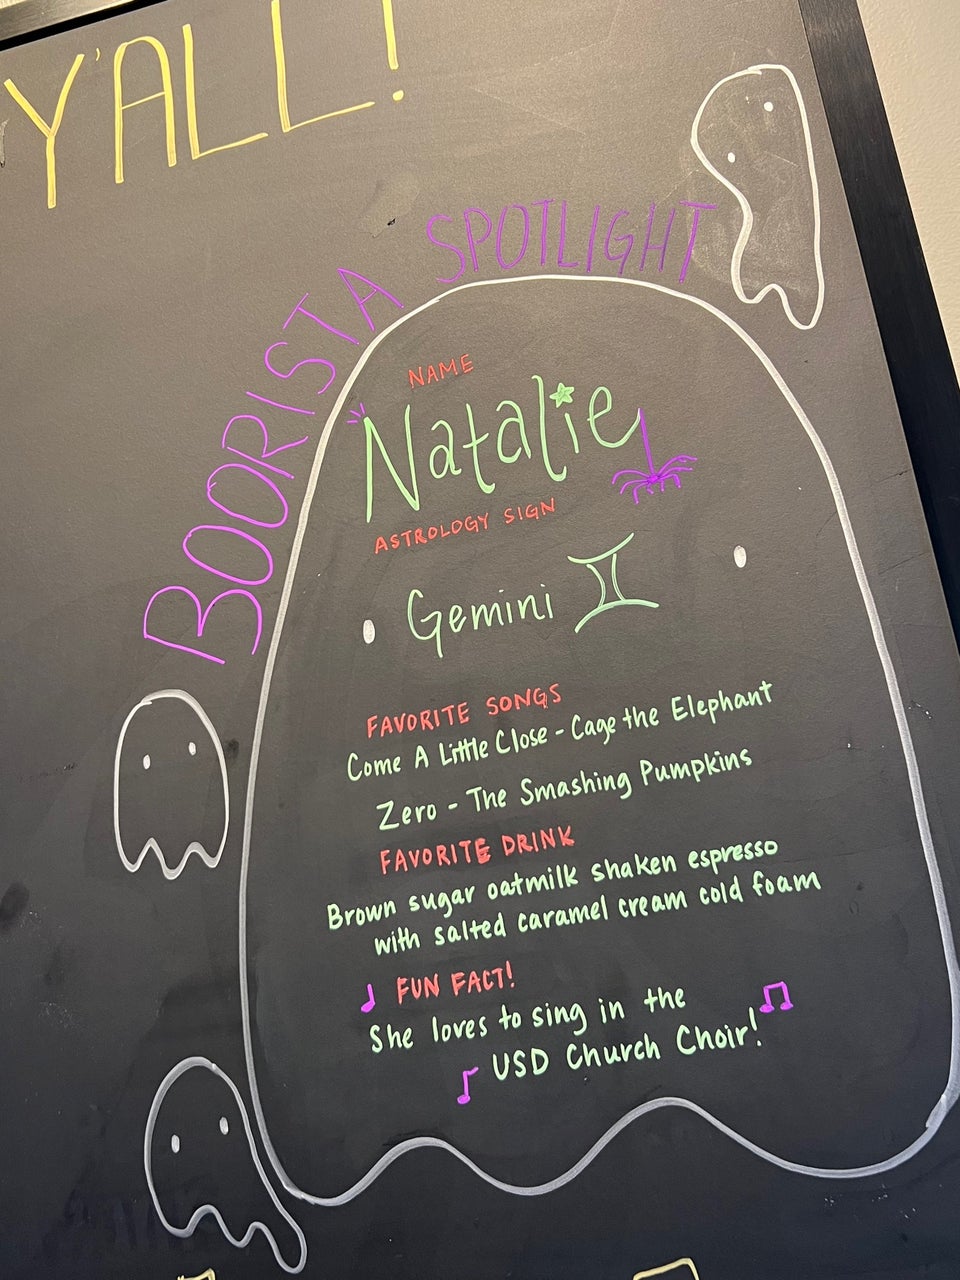 Y'ALL!
BOORISTA SPOTLIGHT
NAME
Natalie
ASTROLOGY SIGN
Gemini ♊
FAVORITE SONGS
Come A Little Close - Cage the Elephant
Zero - The Smashing Pumpkins
FAVORITE DRINK
Brown sugar oatmilk shaken espresso
with salted caramel cream cold foam
FUN FACT!
She loves to sing in the
USD Church Choir!